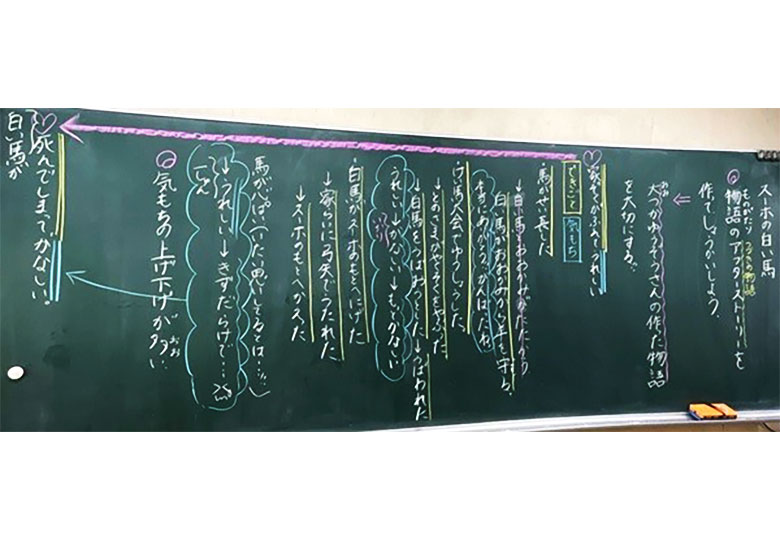 スーホの白い馬
ものがたり つづきの物語
物語のアフターストーリーを
作ってしょうかいしよう。
⇐
おお
大つかゆうぞうさんの作った物語
を大切にする。
できごと 気もち
家ぞくがふえてうれしい
馬がせい長した
白い馬がおおかみから羊を守る
→競馬大会でゆうしょうした
→とのさまがやくそくをやぶった
→白馬をうばおうとした
うばわれた
うれしい→かなしい→もっとかなしい
白馬がスーホのもとへにげた
→家らいに弓矢でうたれた
→スーホのもとへかえった
うれしい→きずだらけで…
気もちの上げ下げが多い
おお
白い馬が
死んでしまってかなしい。